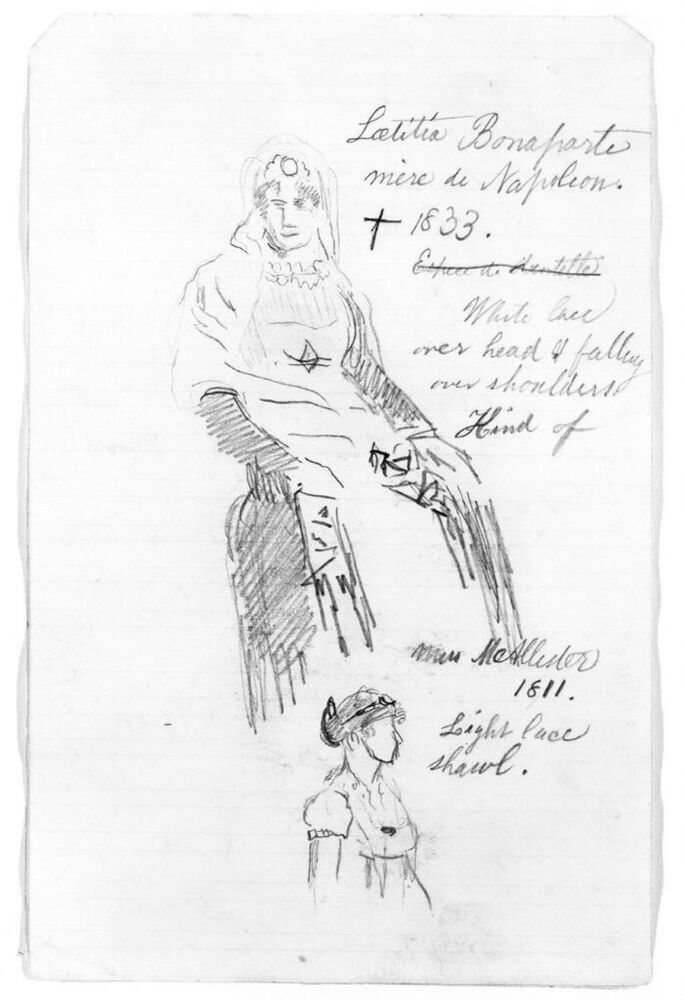 Lœtitia Bonaparte
mère de Napoleon.
† 1833.
Espece de dentelle
White lace
over head & falling
over shoulders.
Kind of
Miss McAllister
1811.
Light lace
shawl.